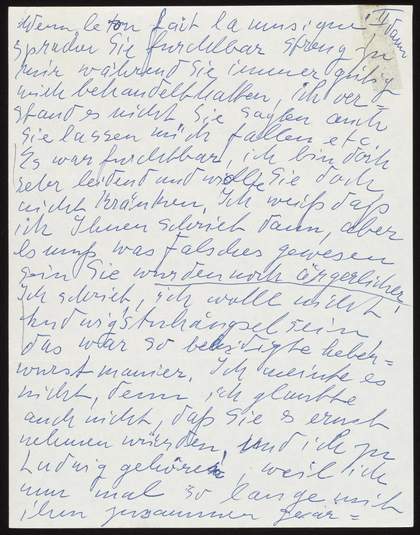 Wenn le ton fait la musique: II dann
sprachen Sie furchtbar streng zu
mir während Sie immer gütig
mich behandelt hatten, ich ver=
stand es nicht, Sie sagten auch
Sie lassen mich fallen etc.
Es war furchtbar, ich bin doch
sehr leidend und wollte Sie doch
nicht kränken. Ich weiß daß
ich Ihnen schrieb dann, aber
es muß was falsches gewesen
sein Sie wurden noch ärgerlicher,
Ich schrieb, ich wolle nicht
Ludwig's Anhängsel sein
das war so beleidigte Leber=
wurst manier. Ich meinte es
nicht, denn ich glaubte
auch nicht, daß Sie es ernst
nehmen würden, und ich zu
Ludwig gehöre, weil ich
nun mal so lange mit
ihm zusammen gear=